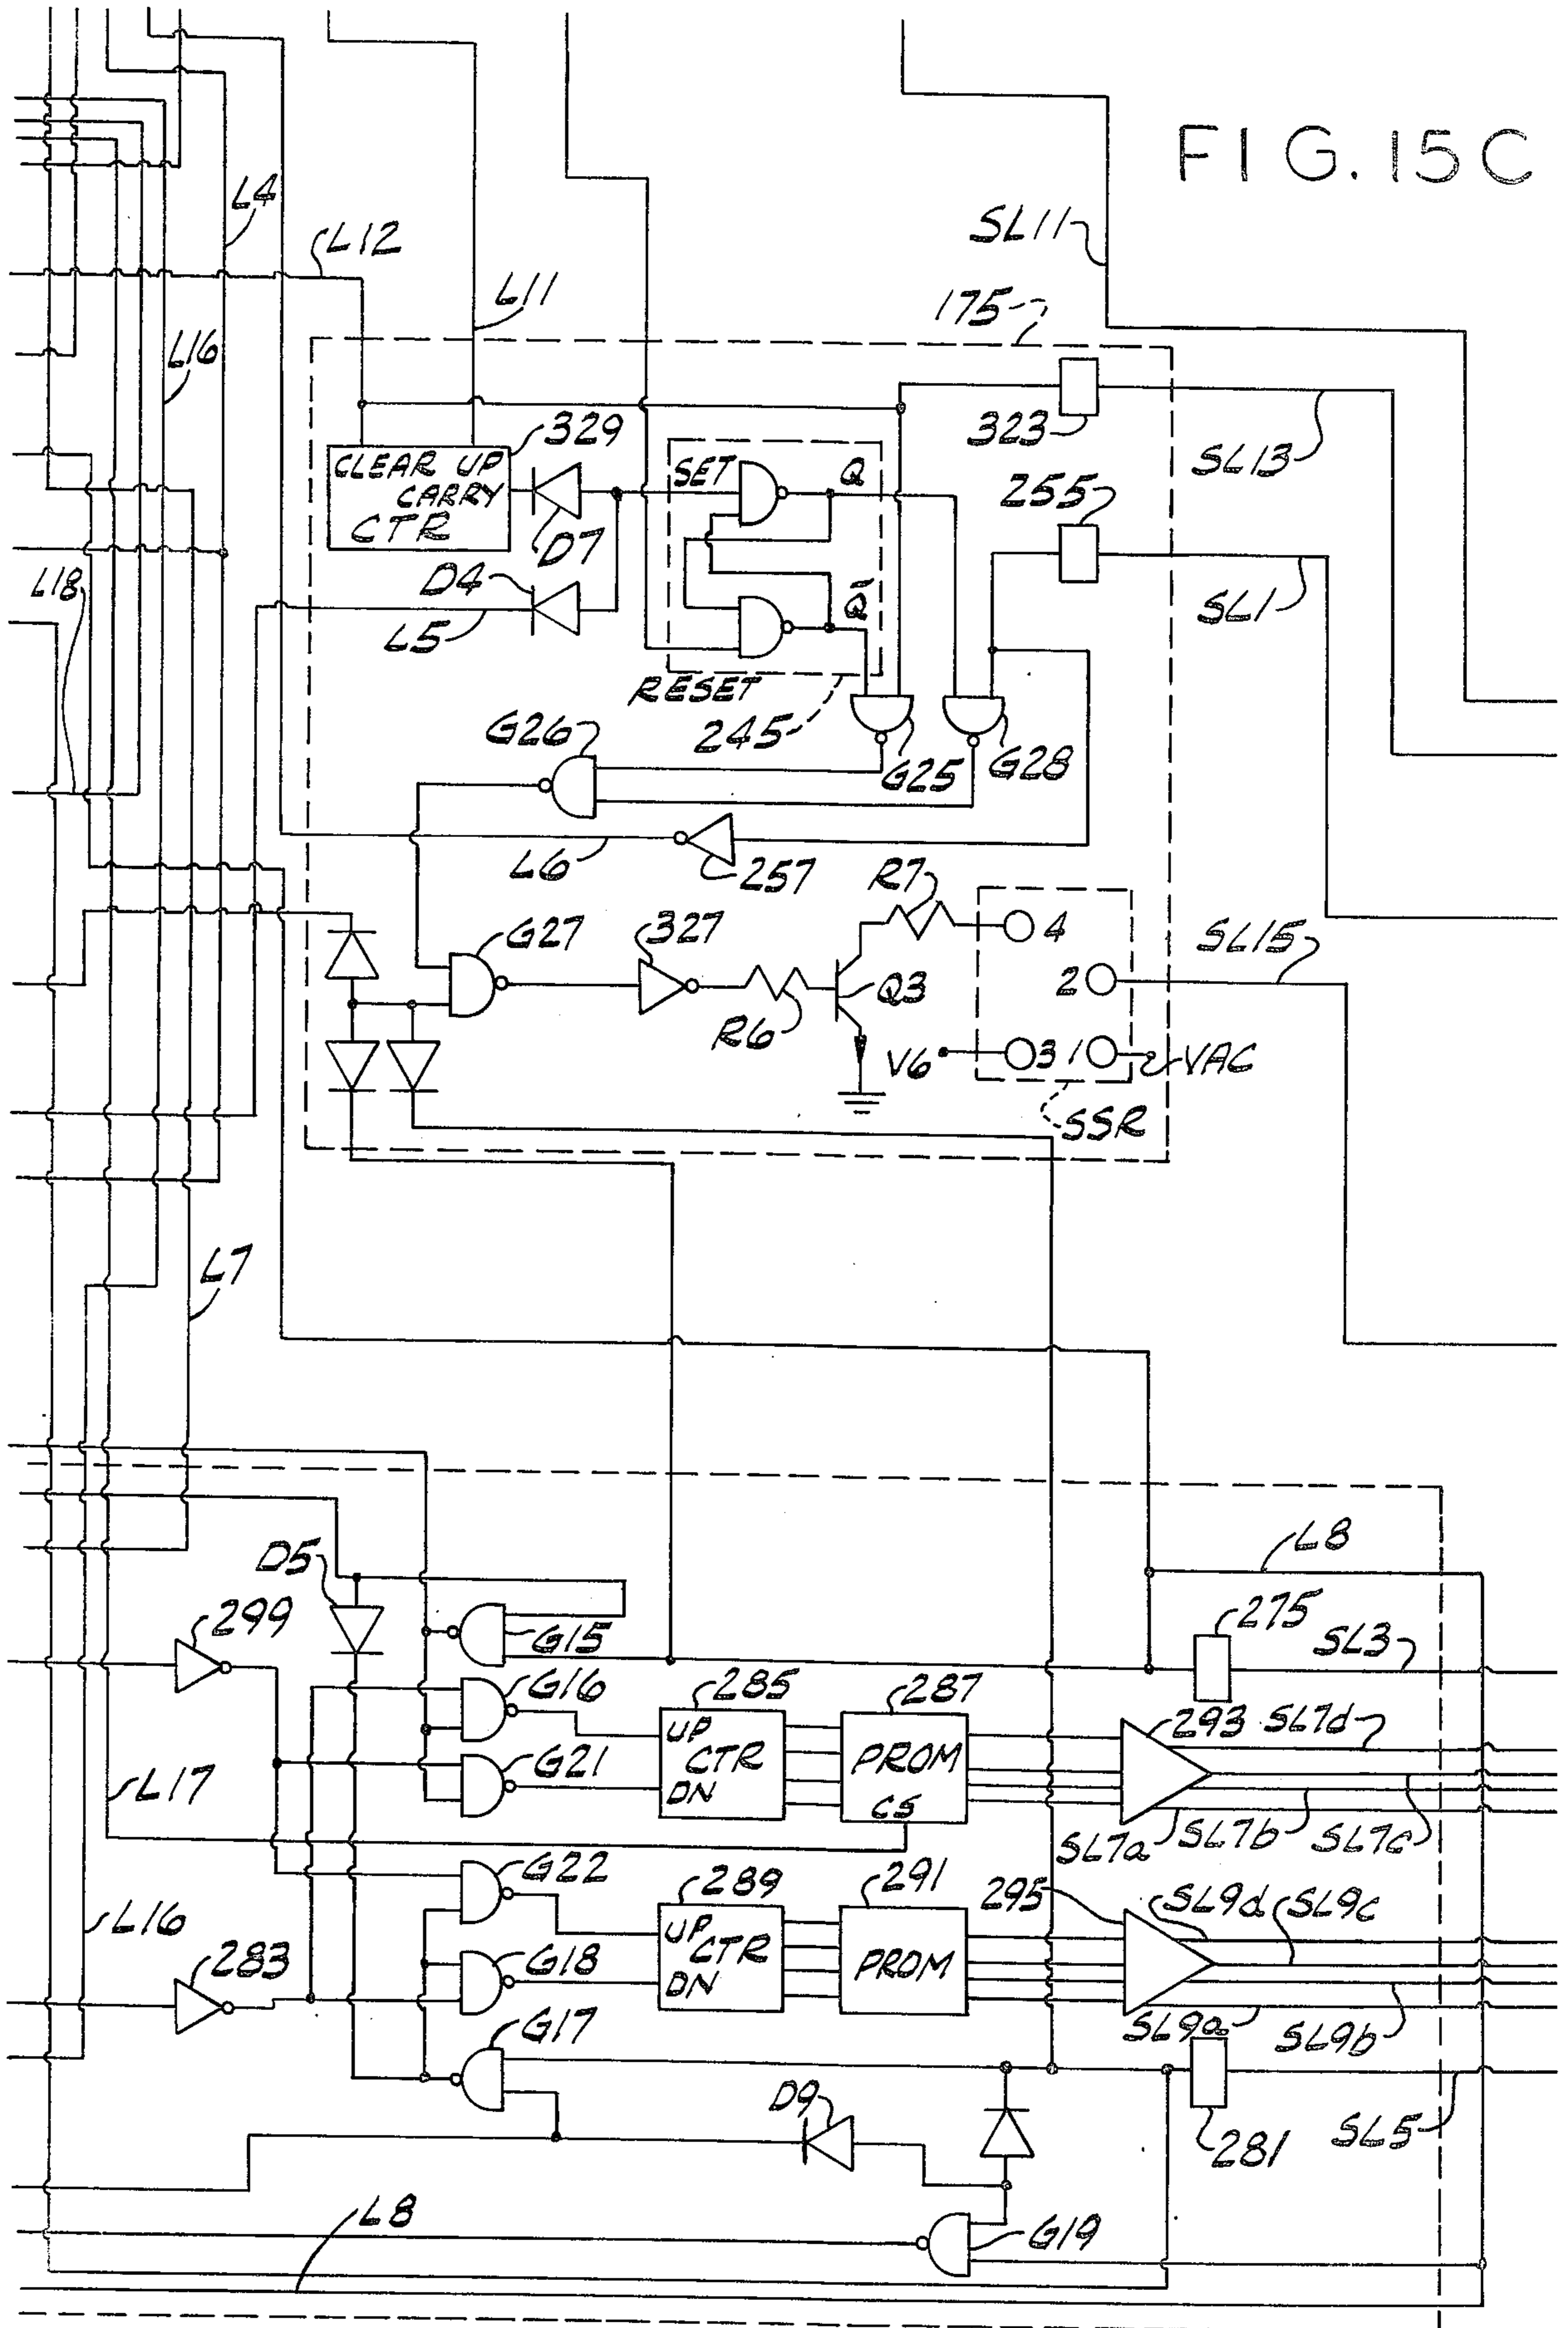 FIG. 15C
L4
L12
SL11
L11
175
L16
323
SL13
329
CLEAR UP
CARRY
CTR
SET
Q
255
D7
D4
L18
L5
Q̄
SL1
RESET
245
G26
G25
G28
L6
257
R7
G27
327
4
SL15
2
Q3
R6
V6
3
1
VAC
SSR
L7
L8
D5
275
299
G15
SL3
G16
285
287
293
SL7d
UP
CTR
DN
PROM
CS
G21
L17
SL7a
SL7b
SL7c
G22
289
291
295
SL9d
SL9c
L16
UP
CTR
DN
PROM
G18
283
SL9a
SL9b
G17
D9
281
SL5
L8
G19